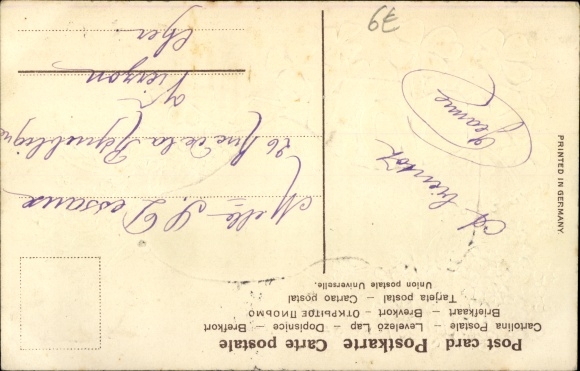 Post card Postkarte Carte postale
Cartolina Postale – Levelező Lap – Dopisnice – Brefkort
Briefkaart – Brevkort – ОТКРЫТОЕ ПИСЬМО
Tarjeta postal – Cartao postal
Union postale Universelle.
A bientôt
Jeanne
Melle S. Dessaux
26 Rue de la République
à
Vierzon
Cher
PRINTED IN GERMANY.